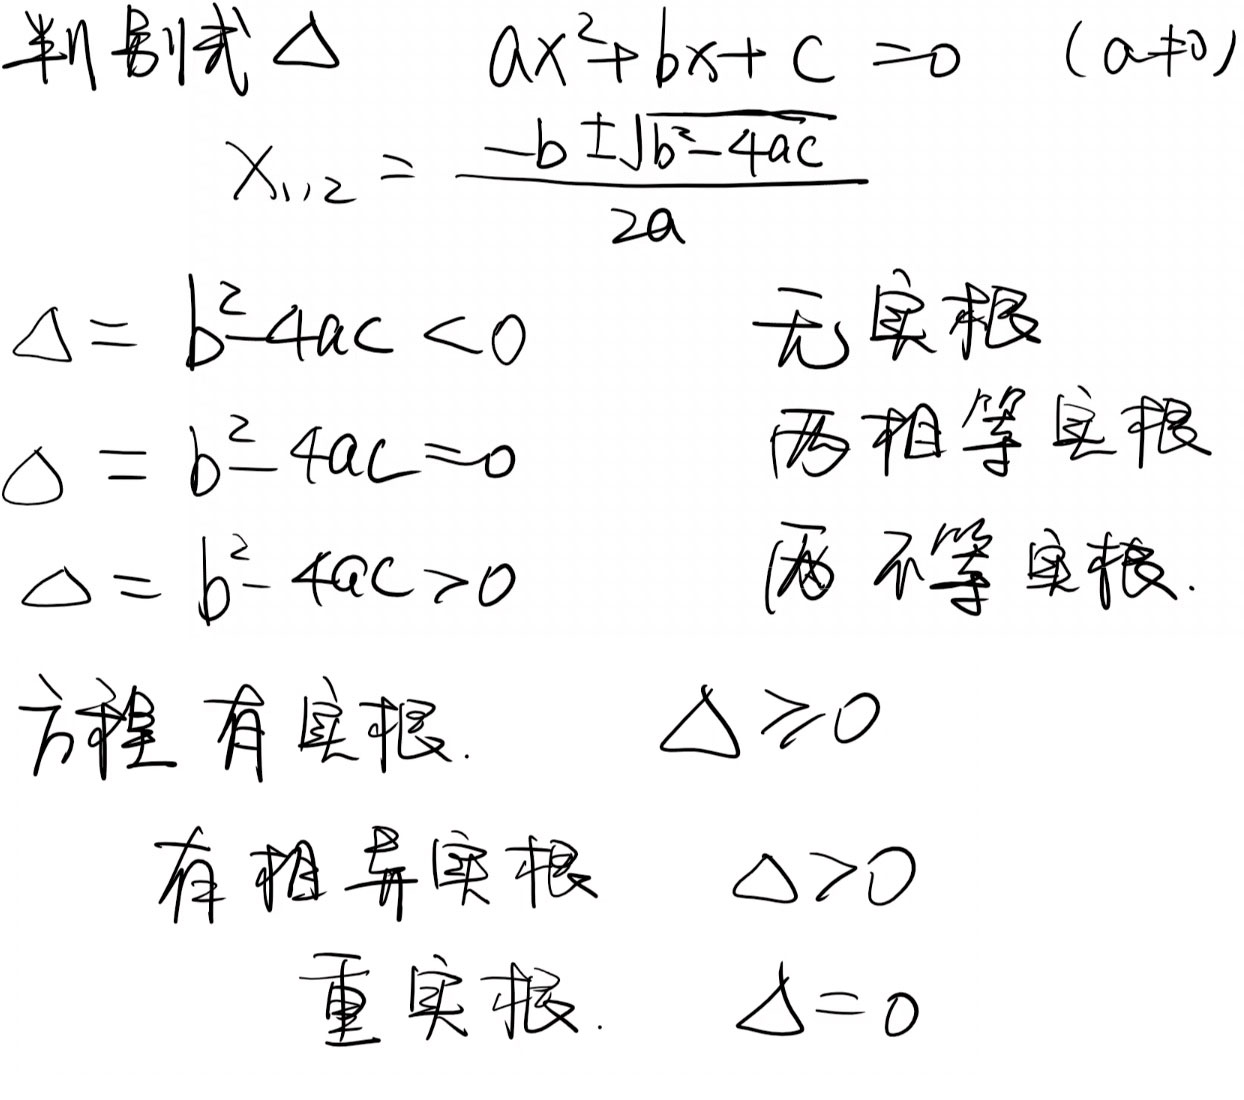 判别式 △ ax²+bx+c=0 (a≠0)
x₁,₂ = (-b±√(b²-4ac))/(2a)
△ = b²-4ac<0 无实根
△ = b²-4ac=0 两相等实根
△ = b²-4ac>0 两不等实根.
方程有实根. △≥0
存相异实根 △>0
重实根. △=0